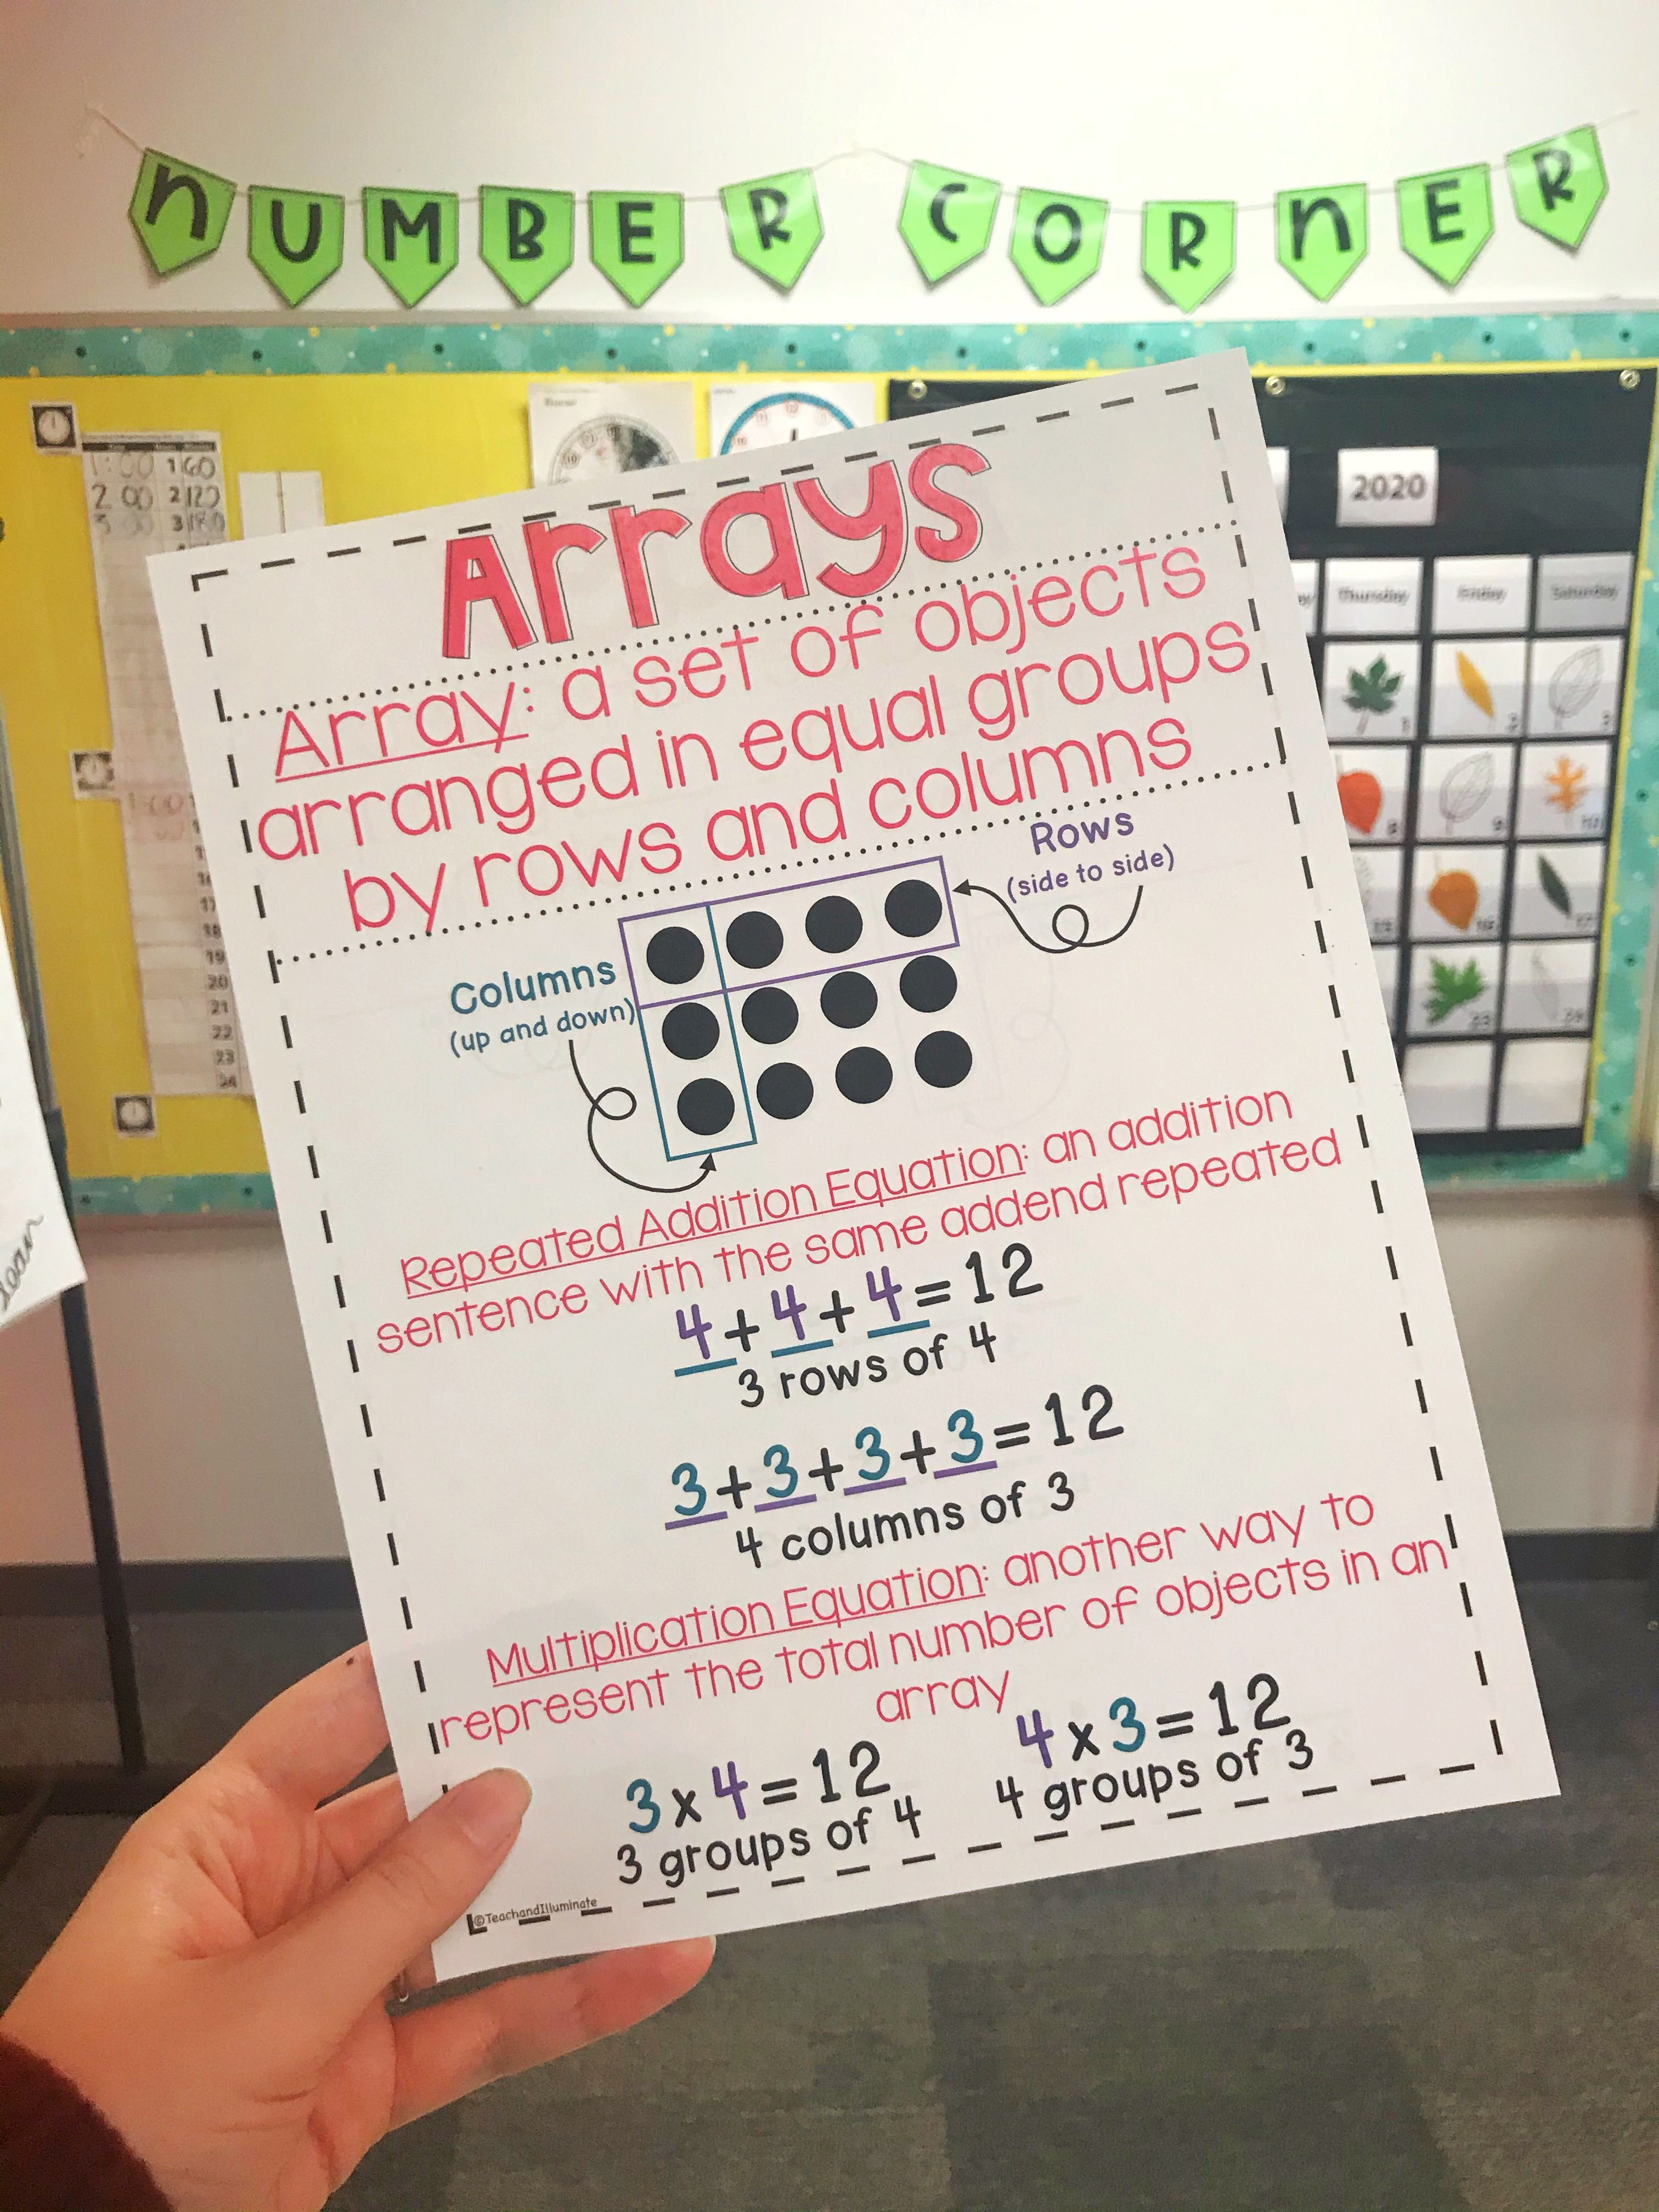 NUMBER CORNER
2020
Thursday
Friday
Saturday
1:00 1 60
2 00 2 120
3 180
19
20
21
22
23
24
Arrays
Array: a set of objects
arranged in equal groups
by rows and columns
Rows
(side to side)
Columns
(up and down)
Repeated Addition Equation: an addition
sentence with the same addend repeated
4+4+4=12
3 rows of 4
3+3+3+3=12
4 columns of 3
Multiplication Equation: another way to
represent the total number of objects in an
array
3x4=12
3 groups of 4
4x3=12
4 groups of 3
©TeachandIlluminate